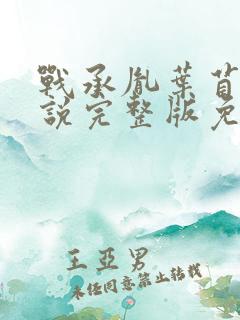 戰承胤葉苜
說完整版免
王亞男
未经同意禁止转载